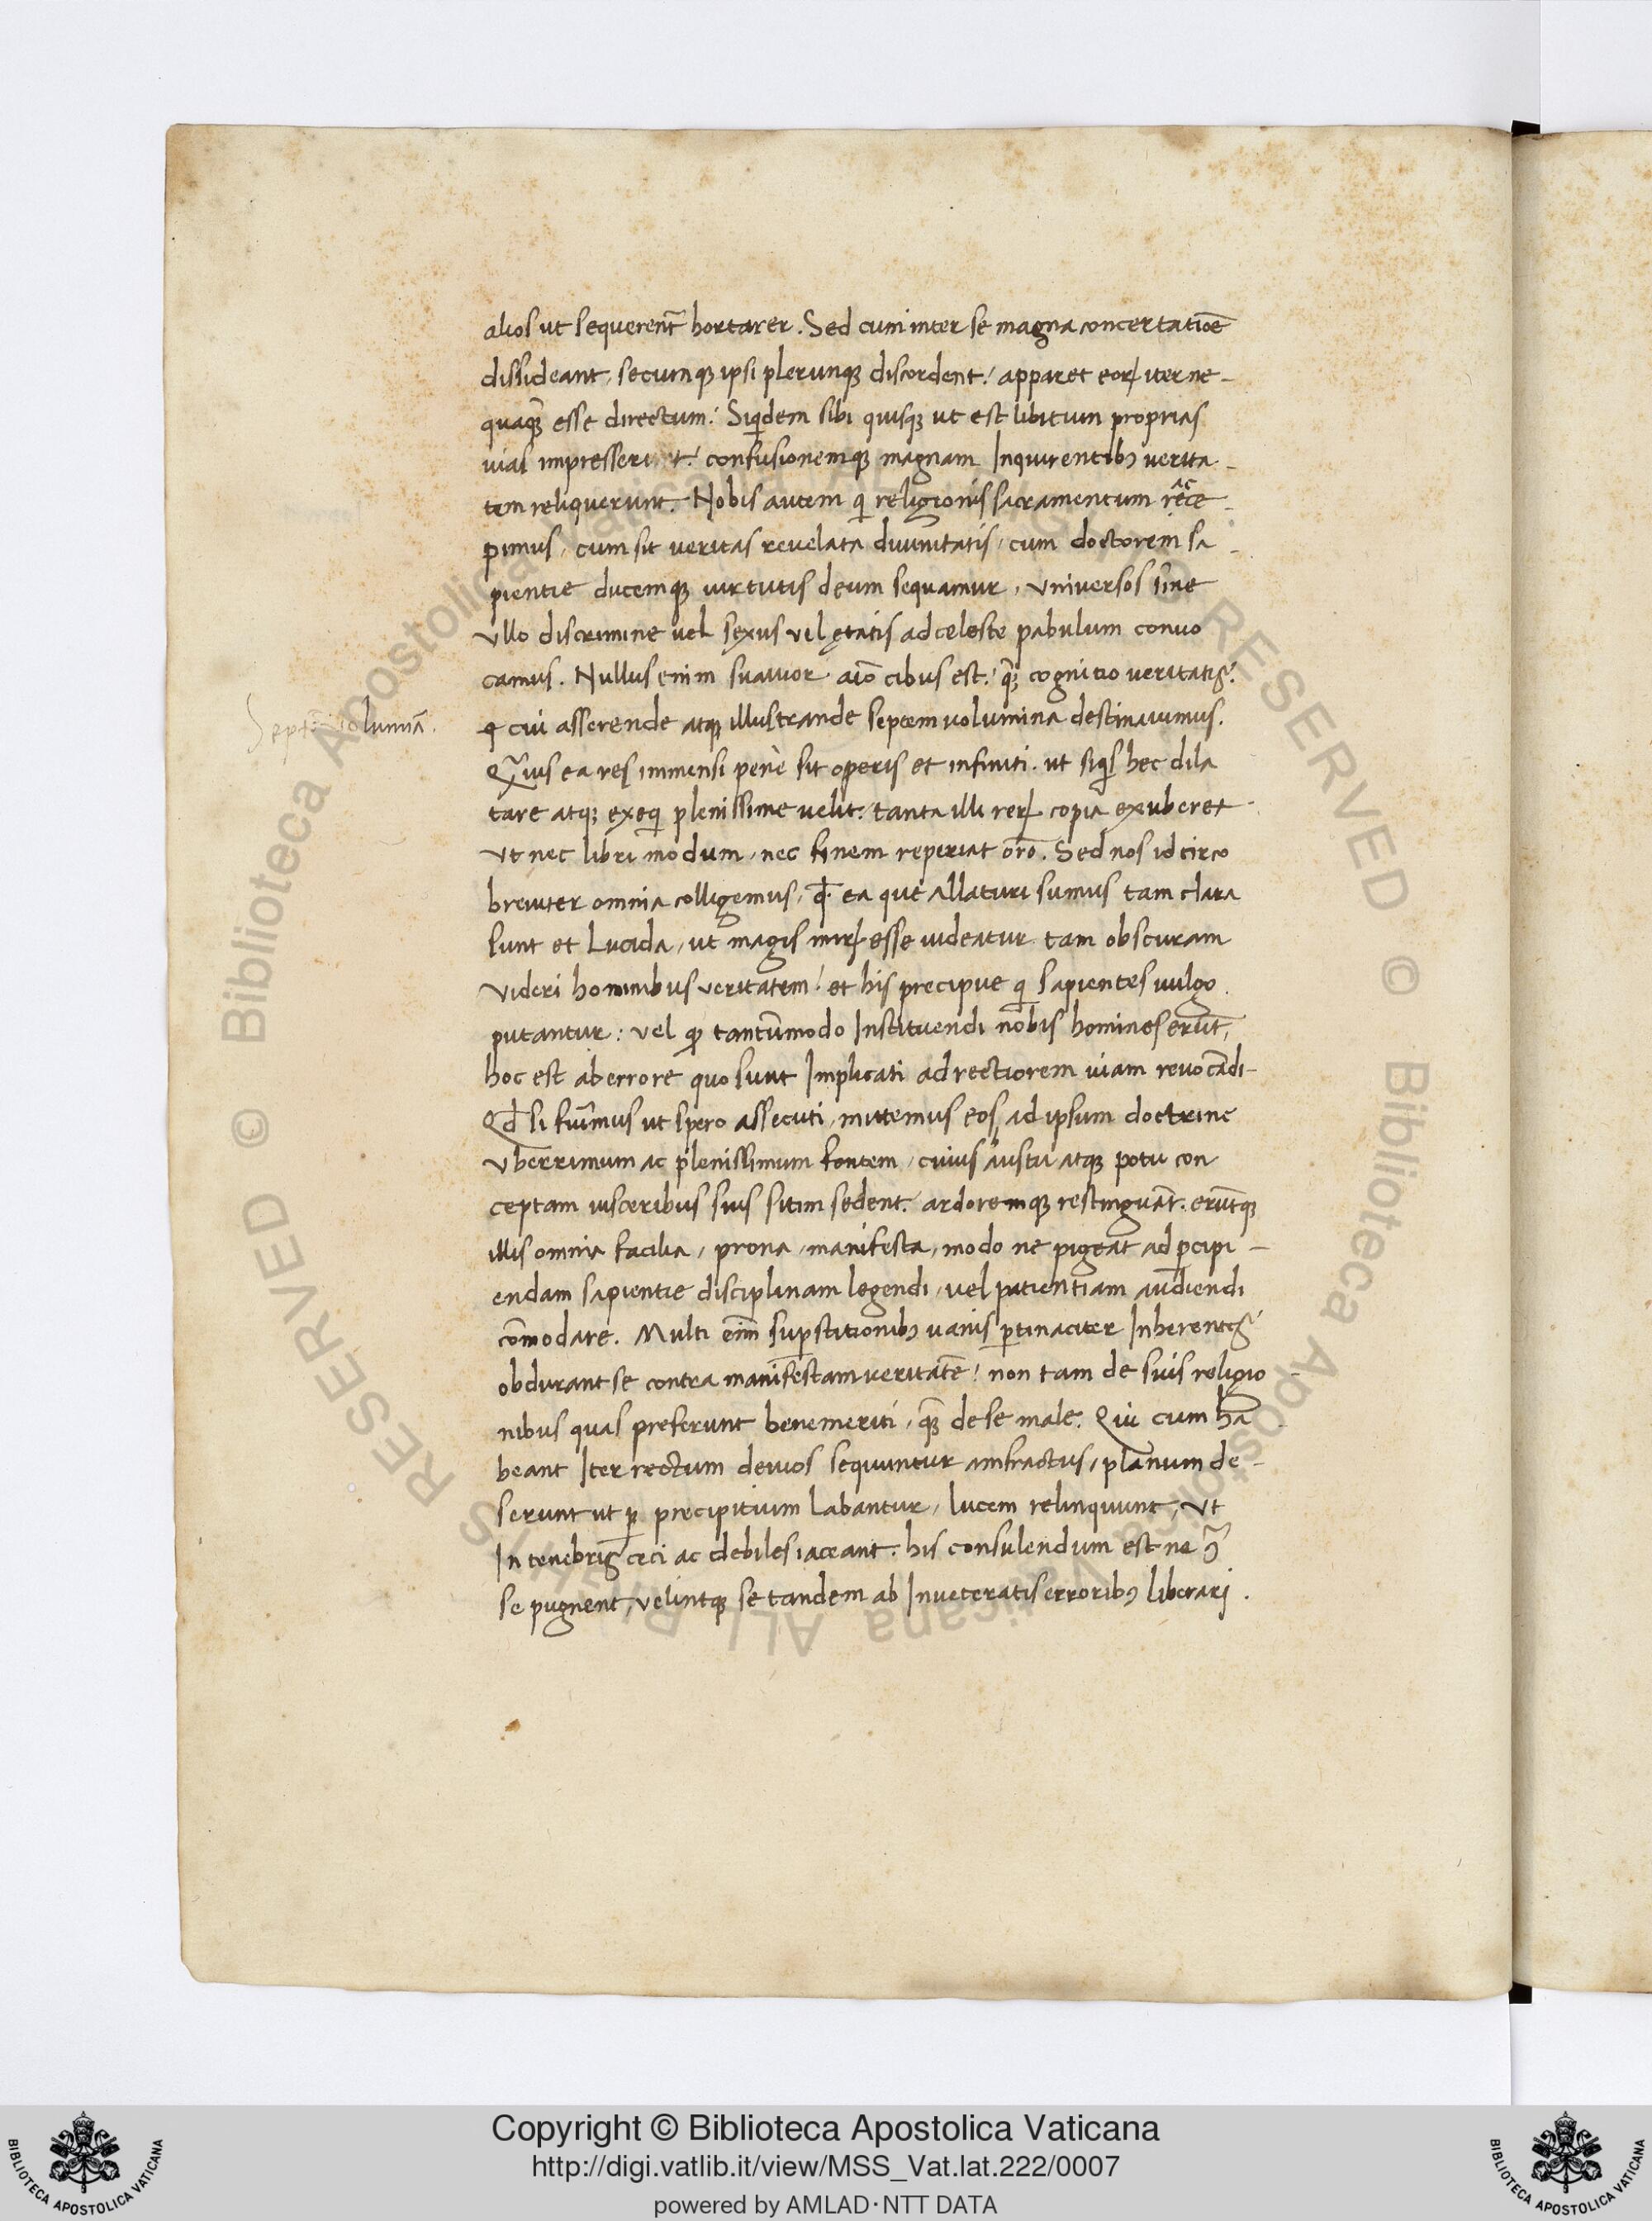 alios ut sequerent᷑ hortarer. Sed cum inter se magna concertatiōe
dissideant, secumqꝫ ipsi plerunqꝫ discordent: apparet eoꝝ iter ne-
quaqꝫ̄ esse directum: Siqͥdem sibi quisqꝫ ut est libitum proprias
uias impresserunt: confusionemqꝫ magnam Inquirentibꝯ uerita-
tem reliquerunt. Nobis autem qͥ religionis sacramentum rece-
pimus, cum sit ueritas reuelata diuinitatis, cum doctorem sa-
pientie ducemqꝫ uirtutis deum sequamur, Vniversos sine
Vllo discrimine uel sexus uel ętatis ad celeste pabulum conuo
camus. Nullus enim suauior aīo cibus est: qꝫ̄ cognitio ueritatis:
Septē uolumīa.
cui asserende atqꝫ illustrande septem uolumina destinauimus.
Qͣuis ea res immensi penè sit operis et infiniti. ut siqͥs hec dila
tare atqꝫ exeqͥ plenissime uelit: tanta illi reꝝ copia exuberet
Vt nec libri modum, nec finem reperiat orō. Sed nos idcirco
breuiter omnia colligemus, qꝉ ea que allaturi sumus tam clara
sunt et Lucida, ut magis miꝝ esse uideatur tam obscuram
Videri hominibus veritatem: et his precipue qͥ sapientes uulgo
putantur: Vel qꝛ tantūmodo Instituendi nobis homines erūt,
hoc est ab errore quo sunt Implicati ad rectiorem uiam reuocādi-
Qd̄ si fuīmus ut spero assecuti, mittemus eos ad ipsum doctrine
Vberrimum ac plenissimum fontem, cuius austu atqꝫ potu con
ceptam uisceribus suis sitim sedent: ardoremqꝫ restinguāt. erūtqꝫ
illis omnia facilia, prona, manifesta, modo ne pigeat ad ꝑcipi-
endam sapientie disciplinam legendi, uel patientiam audiendi
cōmodare. Multi enī suꝑstitionibꝯ uanis ꝑtinaciter Inherentes
obdurant se contra manifestam ueritatē: non tam de suis religio-
nibus quas preferunt bene meriti, qꝫ̄ de se male. Qui cum ha
beant Iter rectum deuios sequuntur amfractus, planum de-
serunt ut ꝑ precipitium Labantur, lucem relinquunt, Vt
In tenebris ceci ac debiles iaceant. his consulendum est ne ꝯͣ
se pugnent, velintqꝫ se tandem ab Inueteratis erroribꝯ liberari.
© Biblioteca Apostolica Vaticana ALL RIGHTS RESERVED
© Biblioteca Apostolica Vaticana ALL RIGHTS RESERVED
Copyright © Biblioteca Apostolica Vaticana
http://digi.vatlib.it/view/MSS_Vat.lat.222/0007
powered by AMLAD·NTT DATA
BIBLIOTECA APOSTOLICA VATICANA
BIBLIOTECA APOSTOLICA VATICANA